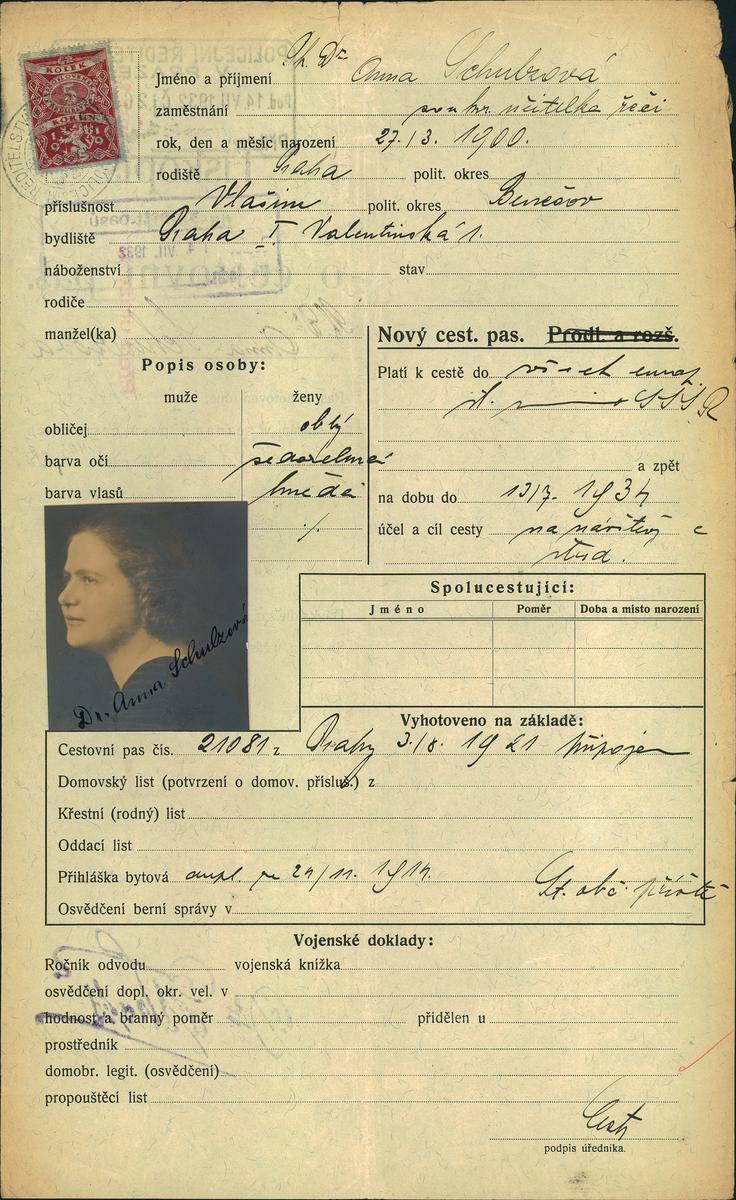 KOLEK
5
KORUN
Ph. Dr
Jméno a příjmení Anna Schubzová
zaměstnání soukr. učitelka řečí
rok, den a měsíc narození 27./3. 1900.
rodiště Praha polit. okres
příslušnost Vlašim polit. okres Benešov
bydliště Praha I Valentinská 1.
náboženství stav
rodiče
manžel(ka)
Nový cest. pas. Prodl. a rozš.
Popis osoby:
Platí k cestě do všech europ.
st. mimo SSSR
muže ženy
obličej oblý
barva očí šedozelená
a zpět
barva vlasů hnědá
na dobu do 13/7. 1934
·/.
účel a cíl cesty na návštěvu a
stud.
Spolucestující:
Jméno Poměr Doba a místo narození
Dr. Anna Schulzová
Vyhotoveno na základě:
Cestovní pas čís. 21081 z Prahy 3./8. 1921 připojen
Domovský list (potvrzení o domov. přísluš.) z
Křestní (rodný) list
Oddací list
Přihláška bytová dupl. ze 24/11. 1914.
St. obč. příště
Osvědčení berní správy v
Vojenské doklady:
Ročník odvodu vojenská knížka
osvědčení dopl. okr. vel. v
hodnost a branný poměr přidělen u
prostředník
domobr. legit. (osvědčení)
propouštěcí list
podpis úředníka.